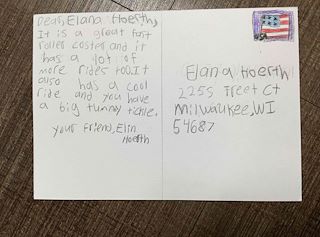 Dear, Elana Hoerth,
It is a great fast
roller coster and it
has a lot of
more rides too. It
also has a cool
ride and you have
a big tummy tickle.
your friend, Elin
Hoerth
Elana Hoerth
2255 Treet Ct
Milwaukee, WI
54687